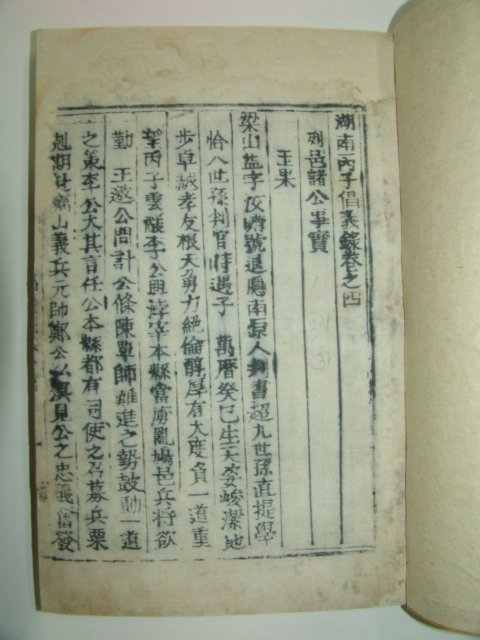 湖南丙子倡義錄卷之四
列邑諸公事實
玉果
梁山益字汝 號退隱南原人判書超九世孫直提學
恰八世孫判官時遇子 萬曆癸巳生天姿峻潔地
步卓越孝友根天勇力絶倫醇厚有大度負一道重
望丙子雲 李公興浡宰本縣當虜亂鳩邑兵將欲
勤 王邀公問計公條陳單師難進之勢鼓動一道
之策李公大其言任公本縣都有司使之召募兵粟
剋期赴 山義兵元帥鄭公弘溟見公之忠義奮發